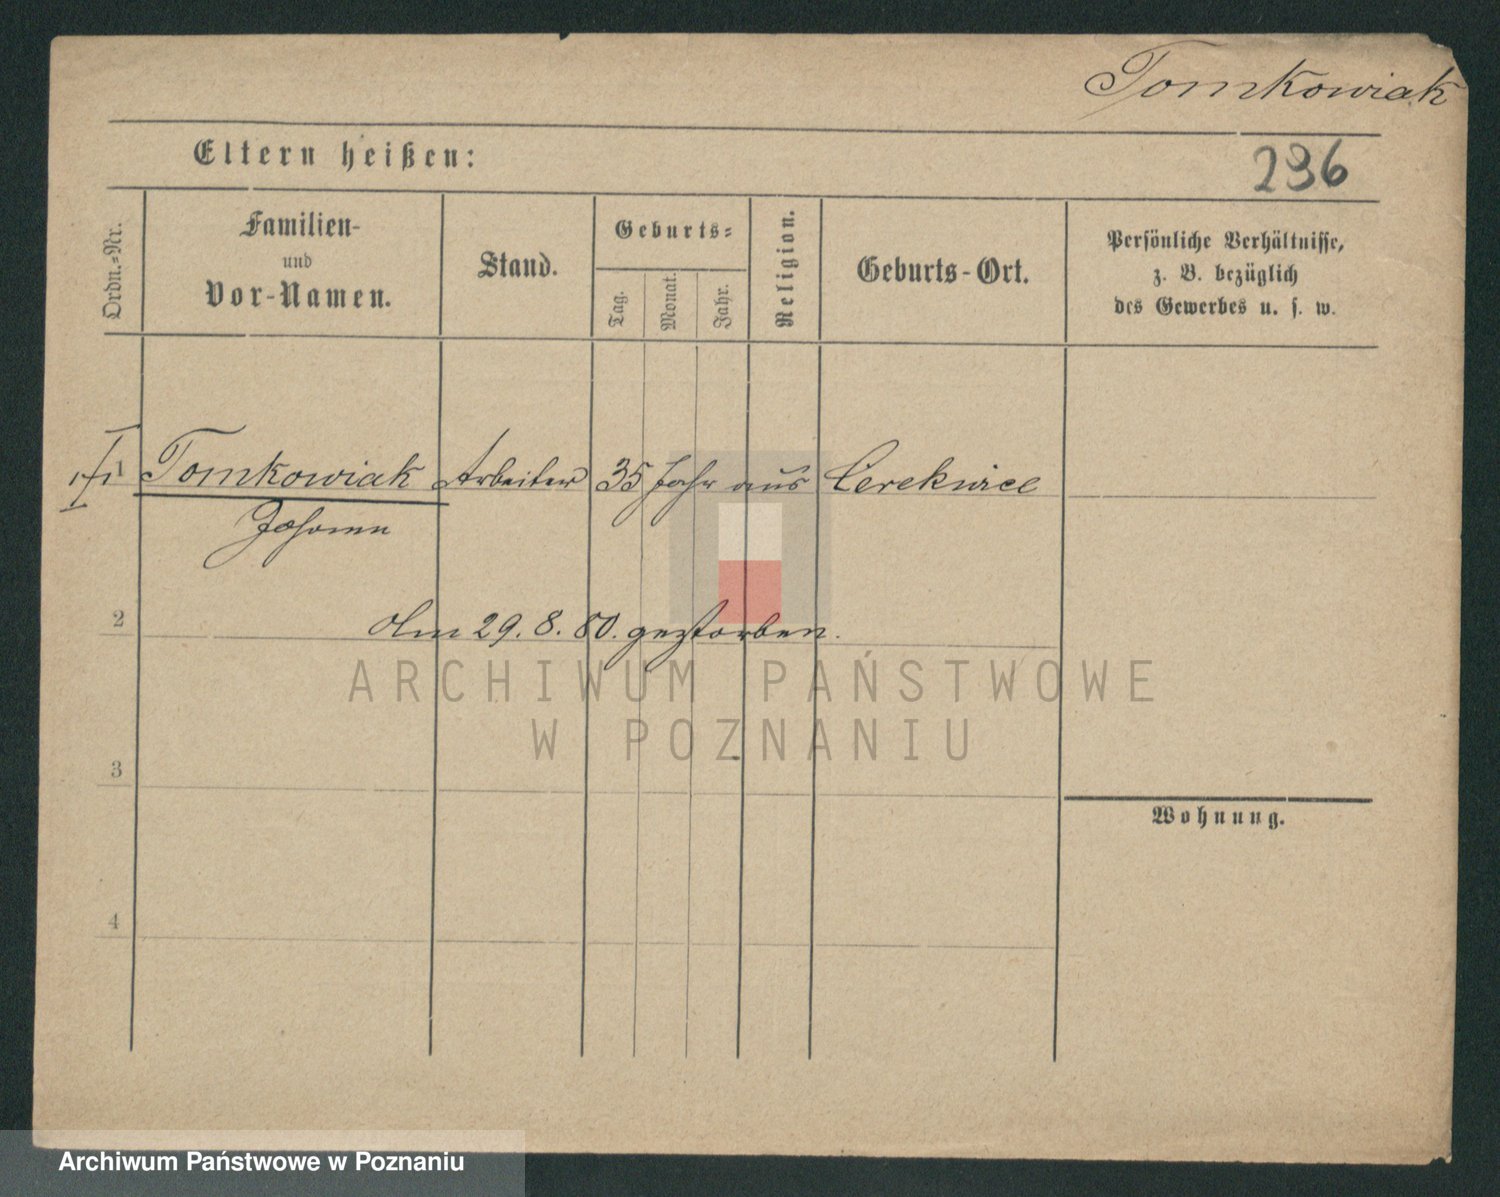 Tomkowiak
Eltern heißen:
296
Ordn.-Nr.
Familien-
und
Vor-Namen.
Stand.
Geburts-
Tag.
Monat.
Jahr.
Religion.
Geburts-Ort.
Persönliche Verhältnisse,
z. B. bezüglich
des Gewerbes u. s. w.
1 Tomkowiak Arbeiter 35 Jahr aus Cerekwice
Johann
2
Am 29. 8. 80. gestorben.
ARCHIWUM PAŃSTWOWE
W POZNANIU
3
Wohnung.
4
Archiwum Państwowe w Poznaniu